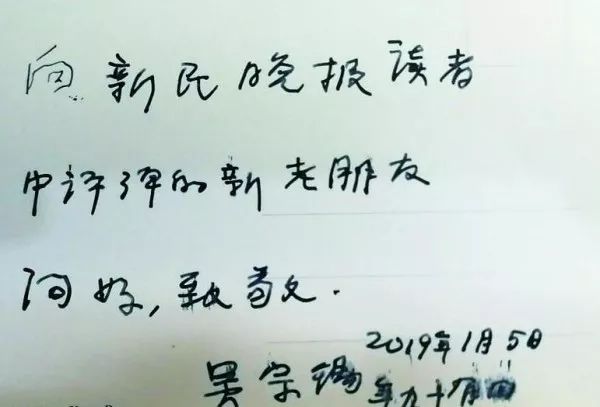 向新民晚报读者
中评弹的新老朋友
问好,致敬.
2019年1月5日
吴宗锡 年九十